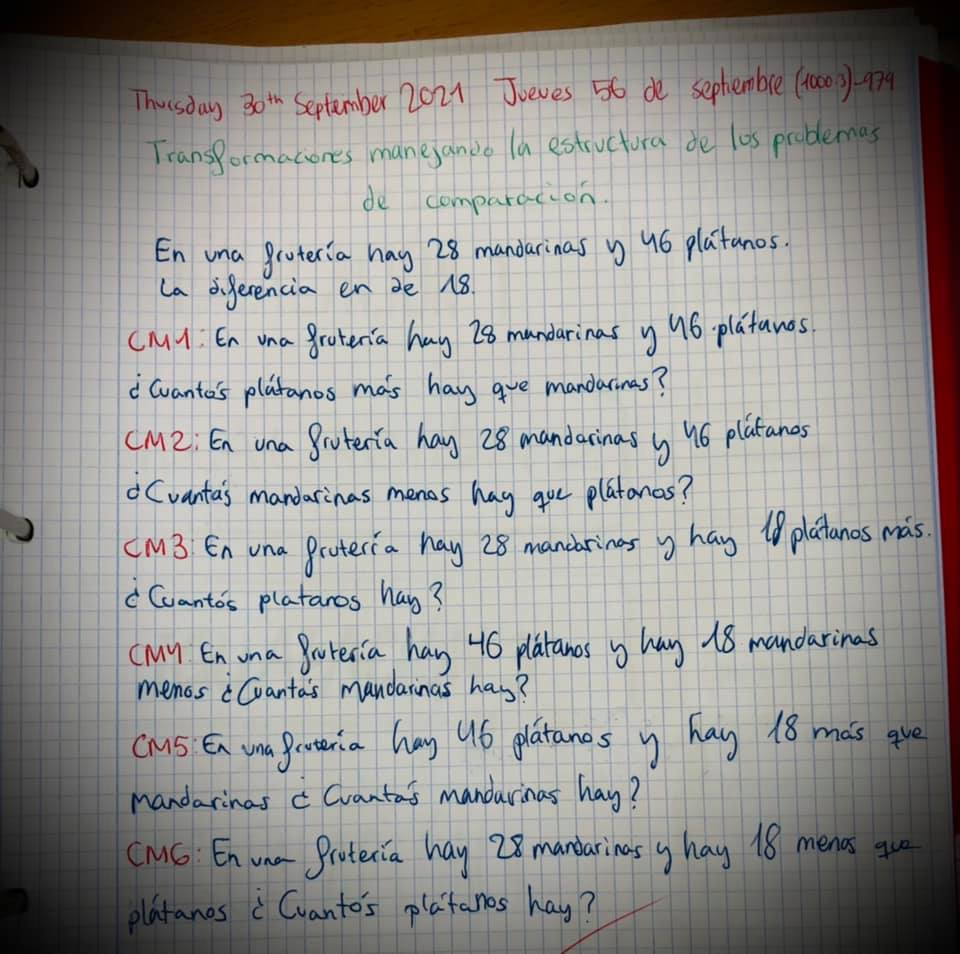 Thursday 30th September 2021 Jueves 56 de septiembre (1000·3)-979
Transformaciones manejando la estructura de los problemas
de comparación.
En una frutería hay 28 mandarinas y 46 plátanos.
La diferencia en de 18.
CM1: En una frutería hay 28 mandarinas y 46 plátanos.
¿Cuantós plátanos más hay que mandarinas?
CM2: En una frutería hay 28 mandarinas y 46 plátanos
¿Cuantás mandarinas menos hay que plátanos?
CM3: En una frutería hay 28 mandarinas y hay 18 plátanos más.
¿Cuantós platanos hay?
CM4 En una frutería hay 46 plátanos y hay 18 mandarinas
menos ¿Cuantás mandarinas hay?
CM5: En una frutería hay 46 plátanos y hay 18 más que
mandarinas ¿Cuantás mandarinas hay?
CM6: En una frutería hay 28 mandarinas y hay 18 menos que
plátanos ¿Cuantós plátanos hay?